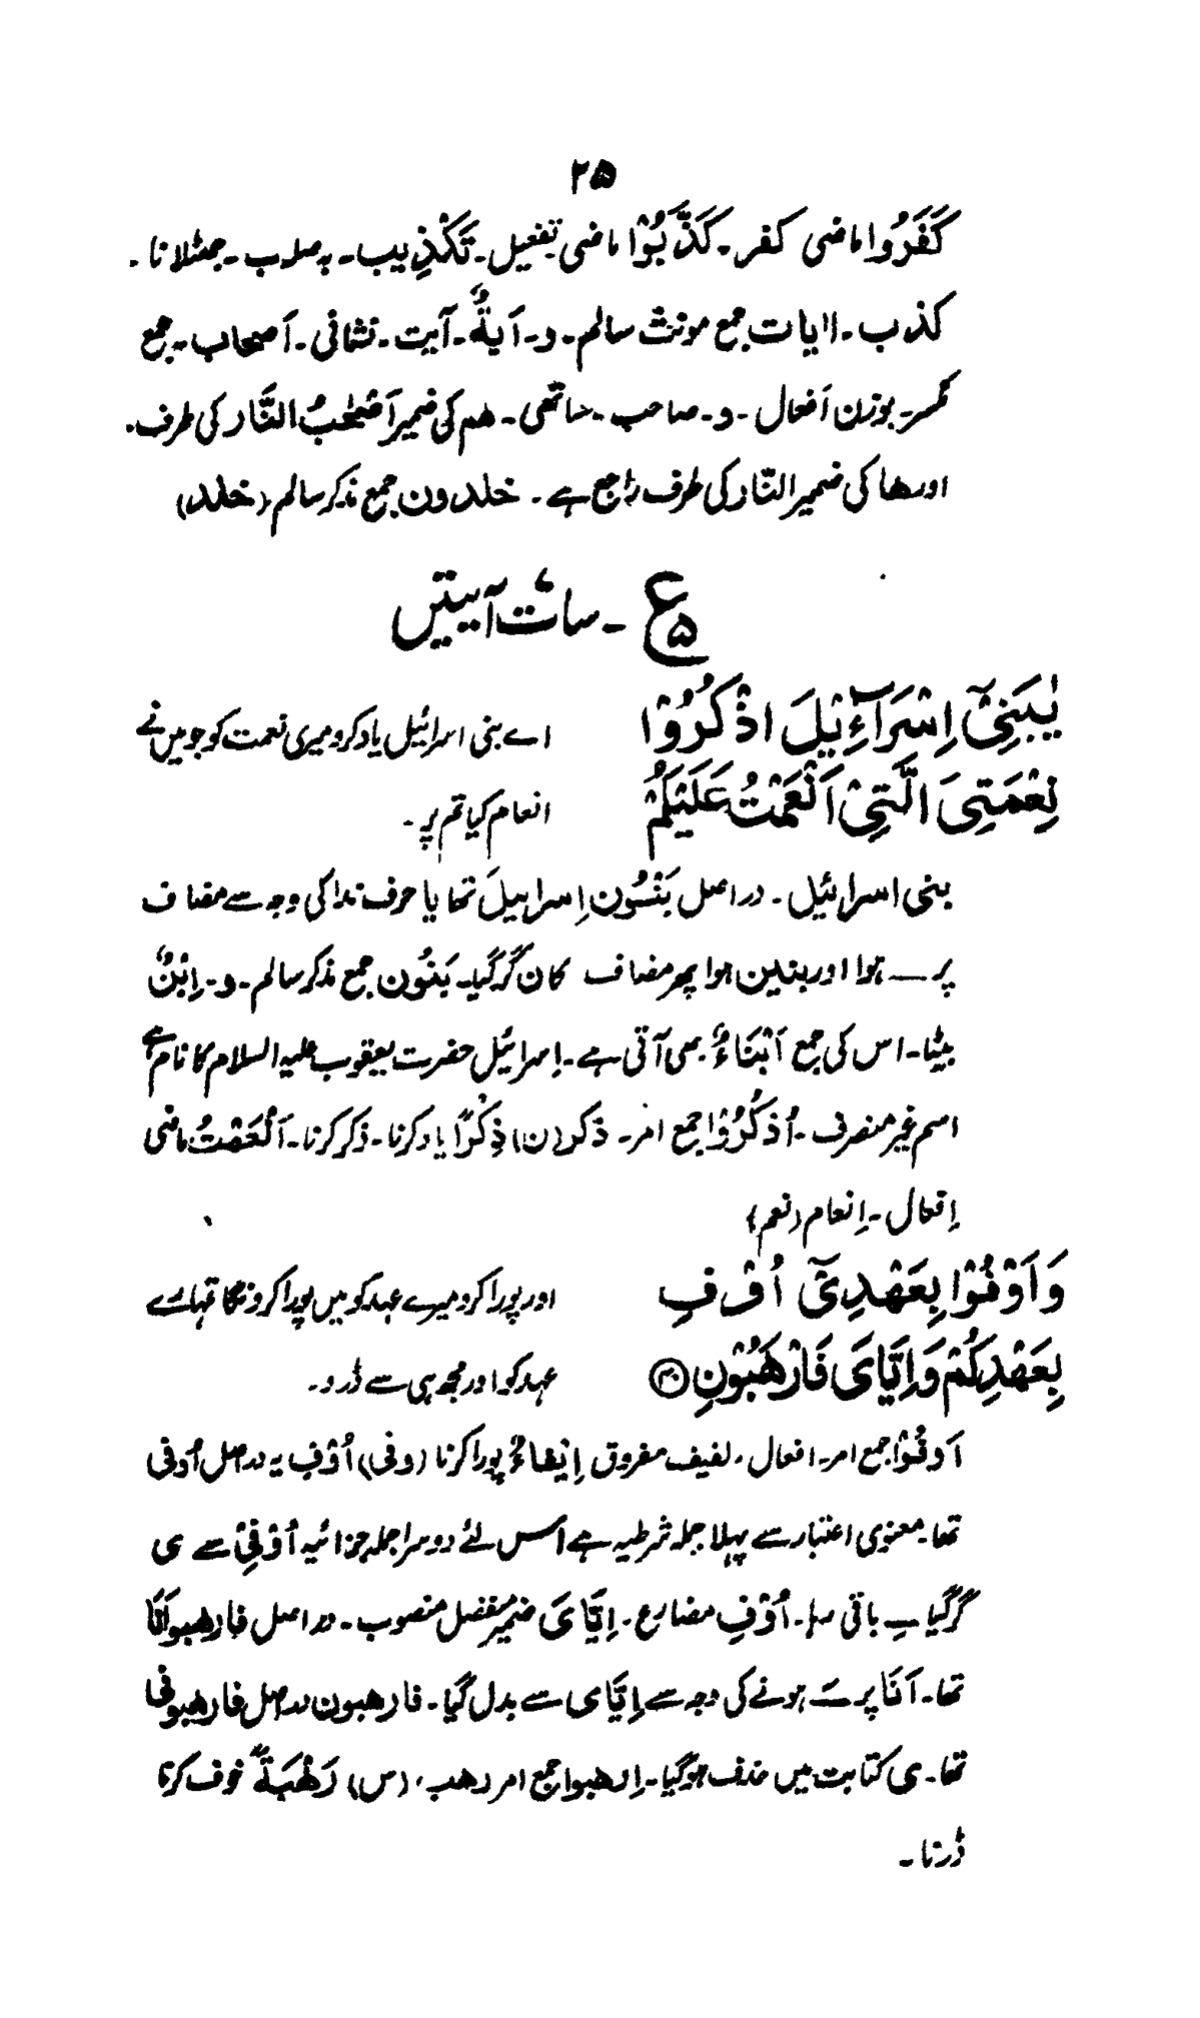 ۲۵
کَفَرُوا ماضی کفر۔ کَذَّبُوْا ماضی تفعیل۔ تَکْذِیب۔ بہ صلہ ب۔ جھٹلانا۔
کذب۔ اٰیات جمع مونث سالم۔ و۔ اٰیَةٌ۔ آیت۔ نشانی۔ اَصحاب۔ جمع
مکسر۔ بوزن اَفعال۔ و۔ صاحب۔ ساتھی۔ ھم کی ضمیر اَصْحٰبُ النَّار کی طرف۔
اور ھا کی ضمیر النّار کی طرف راجع ہے۔ خٰلدون جمع مذکر سالم (خلد)
ع ۵ ۔ سات آیتیں
یٰبَنِیْٓ اِسْرَآءِیْلَ اذْکُرُوْا اے بنی اسرائیل یاد کرو میری نعمت کو جو میں نے
نِعْمَتِیَ الَّتِیْٓ اَنْعَمْتُ عَلَیْکُمْ انعام کیا تم پر۔
بنی اسرائیل۔ دراصل بَنُوْن اِسراہیلَ تھا یا حرف ندا کی وجہ سے مضاف
پر ــَـ ہوا اور بنین ہوا پھر مضاف کا ن گر گیا۔ بَنُون جمع مذکر سالم۔ و۔ اِبْنٌ
بیٹا۔ اس کی جمع اَبْنَاءٌ بھی آتی ہے۔ اِسرائیل حضرت یعقوب علیہ السلام کا نام ہے
اسم غیر منصرف۔ اُذکُرُوْا جمع امر۔ ذکر (ن) ذِکْرًا یاد کرنا۔ ذکر کرنا۔ اَنْعَمْتُ ماضی
اِفعال۔ اِنعام (نعم)
وَاَوْفُوْا بِعَهْدِیْٓ اُوْفِ اور پورا کرو میرے عہد کو میں پورا کروں گا تمہارے
بِعَهْدِکُمْ وَاِیَّایَ فَارْهَبُوْنِ ۴۰ عہد کو اور مجھ ہی سے ڈرو۔
اَوفُوْا جمع امر۔ افعال، لفیف مفروق اِیْفاءٌ پورا کرنا (وفی) اُوْفِ یہ دراصل اُوفی
تھا۔ معنوی اعتبار سے پہلا جملہ شرطیہ ہے اس لئے دوسرا جملہ جزائیہ اُوْفِیْ سے ی
گر گیا ــِـ باقی رہا۔ اُوْفِ مضارع۔ اِیَّایَ ضمیر منفصل منصوب۔ دراصل فارھبوا اَنَا
تھا۔ اَنَا پر ــَـ ہونے کی وجہ سے اِیَّای سے بدل گیا۔ فارھبون دراصل فارھبونی
تھا۔ ی کتابت میں حذف ہو گیا۔ اِرھبوا جمع امر رھب، (س) رَھْبَةً خوف کرنا
ڈرنا۔